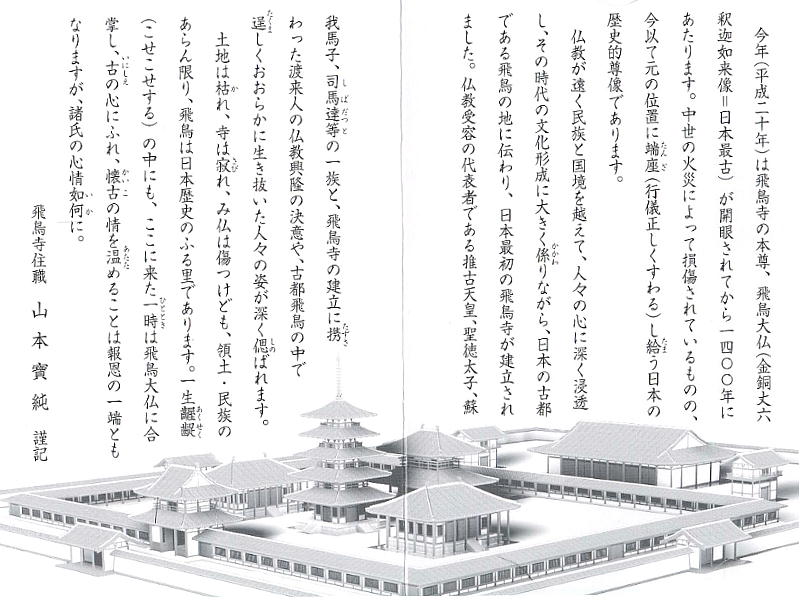 今年(平成二十年)は飛鳥寺の本尊、飛鳥大仏(金銅丈六
釈迦如来像=日本最古)が開眼されてから一四〇〇年に
あたります。中世の火災によって損傷されているものの、
今以て元の位置に端座(行儀正しくすわる)し給う日本の
歴史的尊像であります。
仏教が遠く民族と国境を越えて、人々の心に深く浸透
し、その時代の文化形成に大きく係りながら、日本の古都
である飛鳥の地に伝わり、日本最初の飛鳥寺が建立され
ました。仏教受容の代表者である推古天皇、聖徳太子、蘇
我馬子、司馬達等の一族と、飛鳥寺の建立に携
わった渡来人の仏教興隆の決意や、古都飛鳥の中で
逞しくおおらかに生き抜いた人々の姿が深く偲ばれます。
土地は枯れ、寺は寂れ、み仏は傷つけども、領土・民族の
あらん限り、飛鳥は日本歴史のふる里であります。一生齷齪
(こせこせする)の中にも、ここに来た一時は飛鳥大仏に合
掌し、古の心にふれ、懐古の情を温めることは報恩の一端とも
なりますが、諸氏の心情如何に。
飛鳥寺住職 山本寳純 謹記